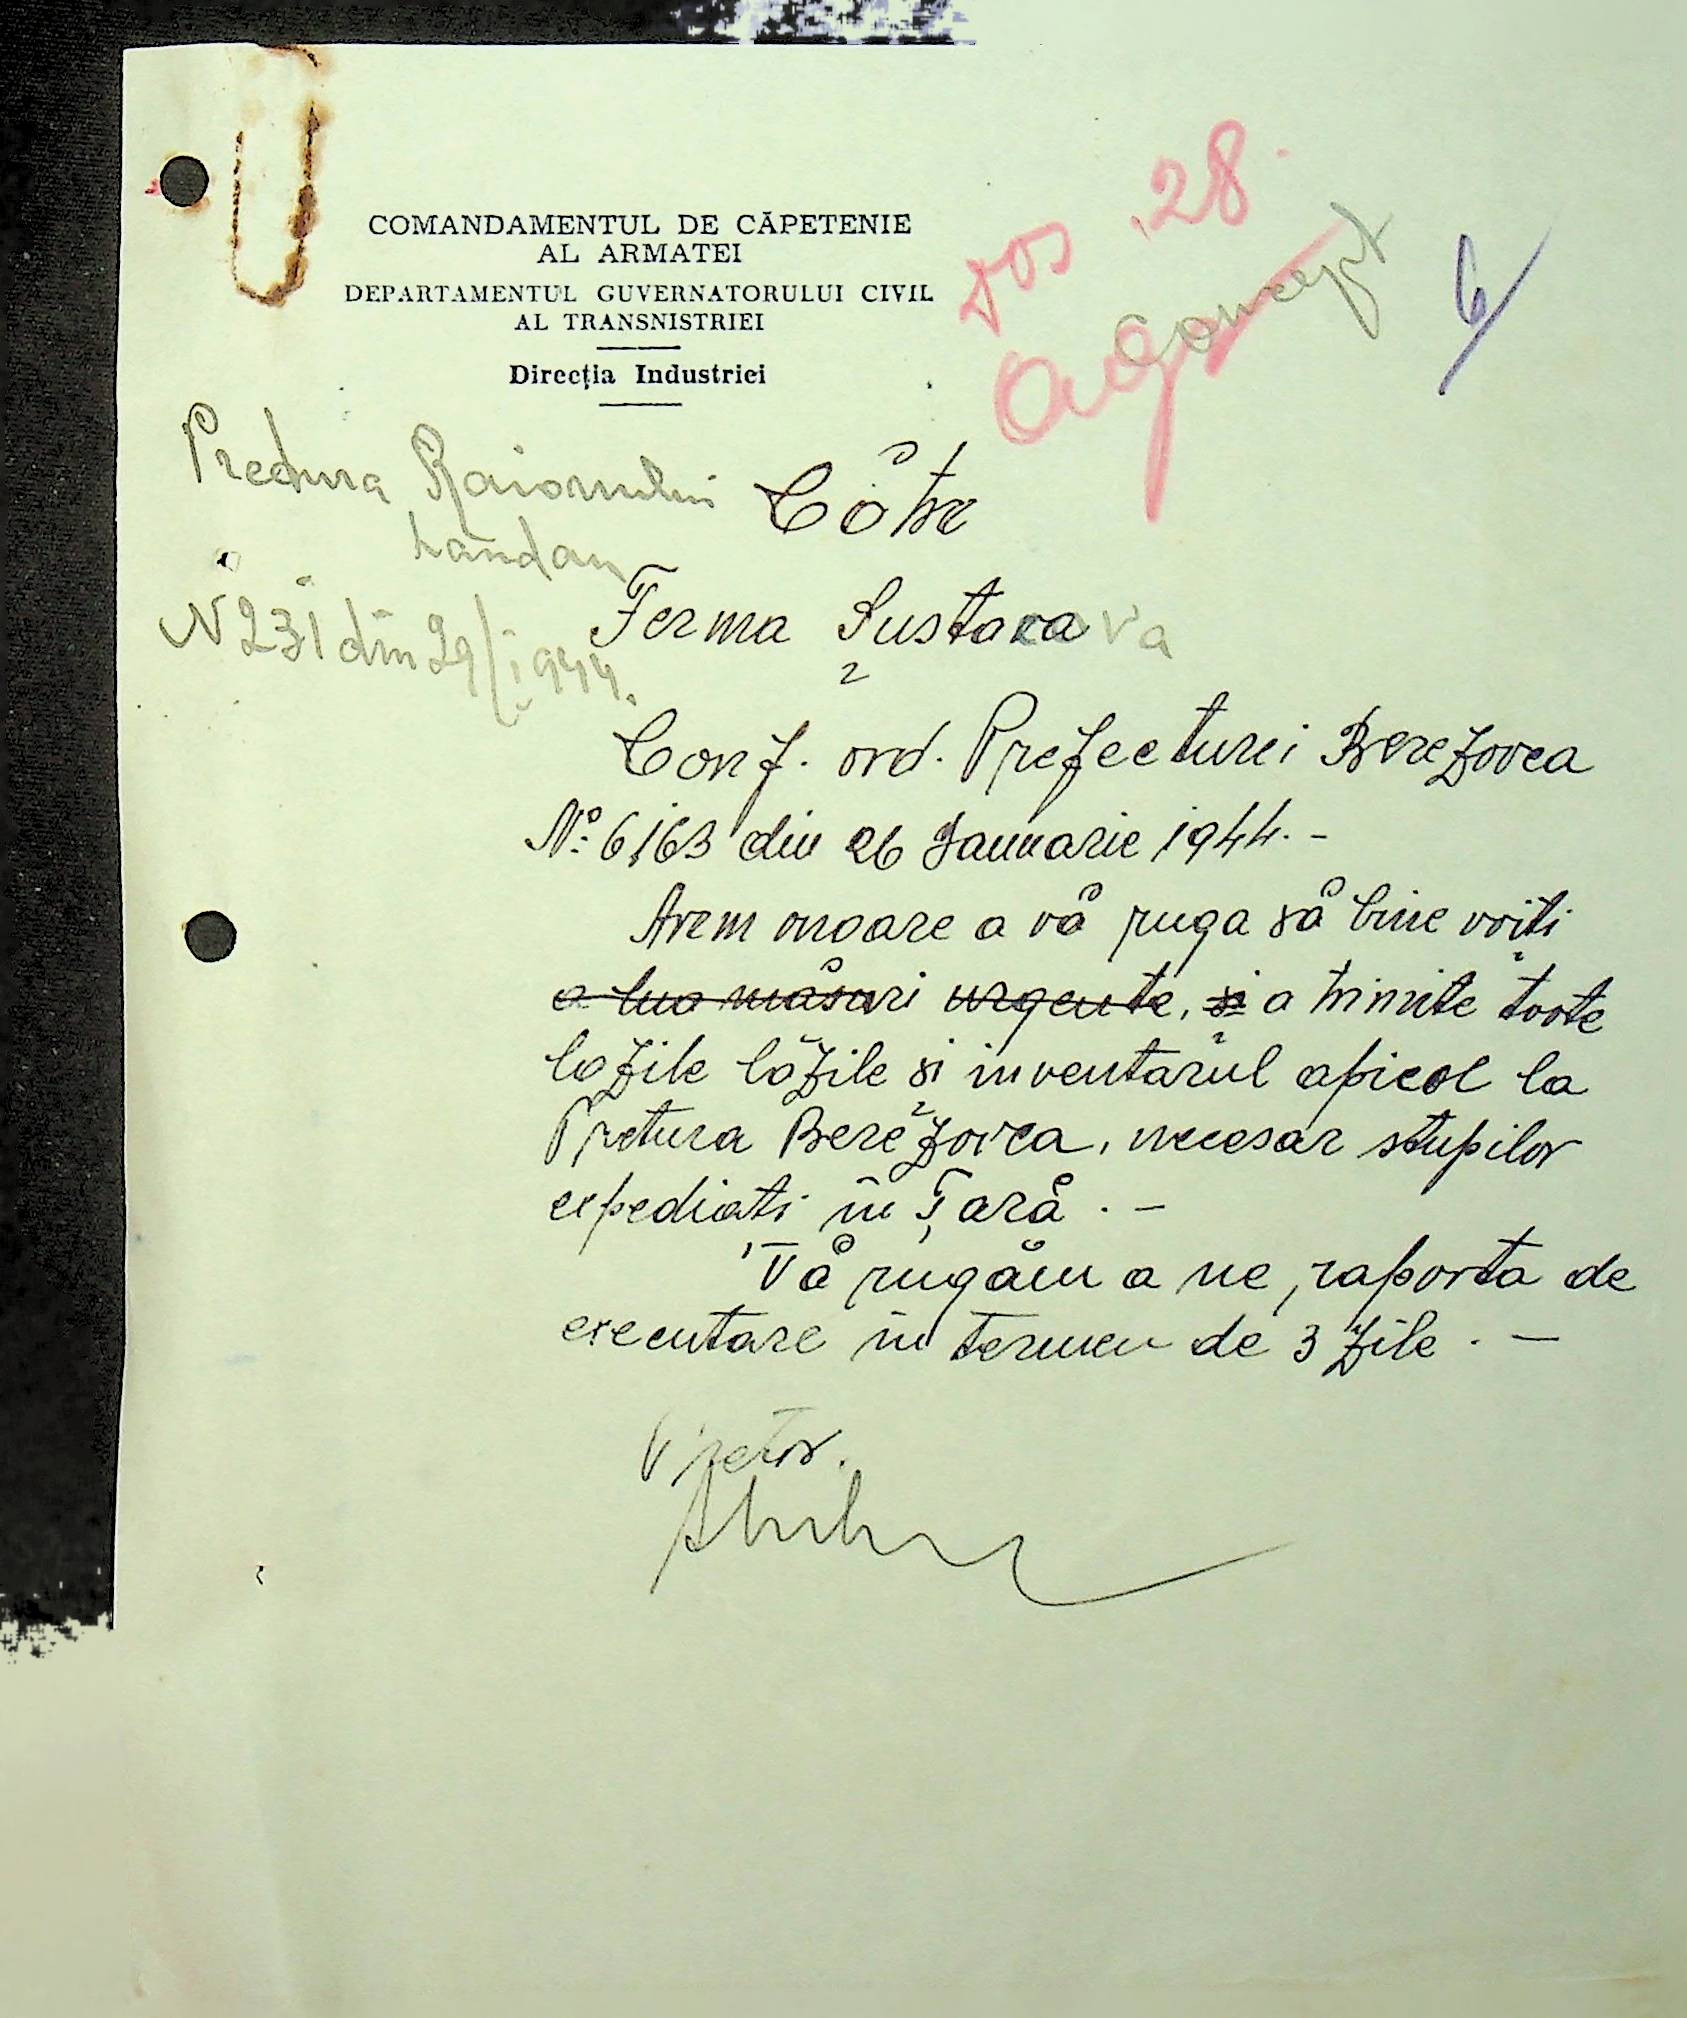 COMANDAMENTUL DE CĂPETENIE
AL ARMATEI
DEPARTAMENTUL GUVERNATORULUI CIVIL
AL TRANSNISTRIEI
Direcția Industriei
Dos 28.
Concept
6
Pretura Raionului
Landau
N 231 din 29/I 1944.
Către
Ferma Șustacova
Conf. ord. Prefecturei Berezovca
No: 6163 din 26 Ianuarie 1944. -
Avem onoare a vă ruga să bine voiți
a lua măsuri urgente, și a trimite toate
lazile lăzile și inventarul apicol la
Pretura Berezovca, necesar stupilor
expediati în Țară. -
Vă rugăm a ne raporta de
executare în termen de 3 zile. -
Pretor.